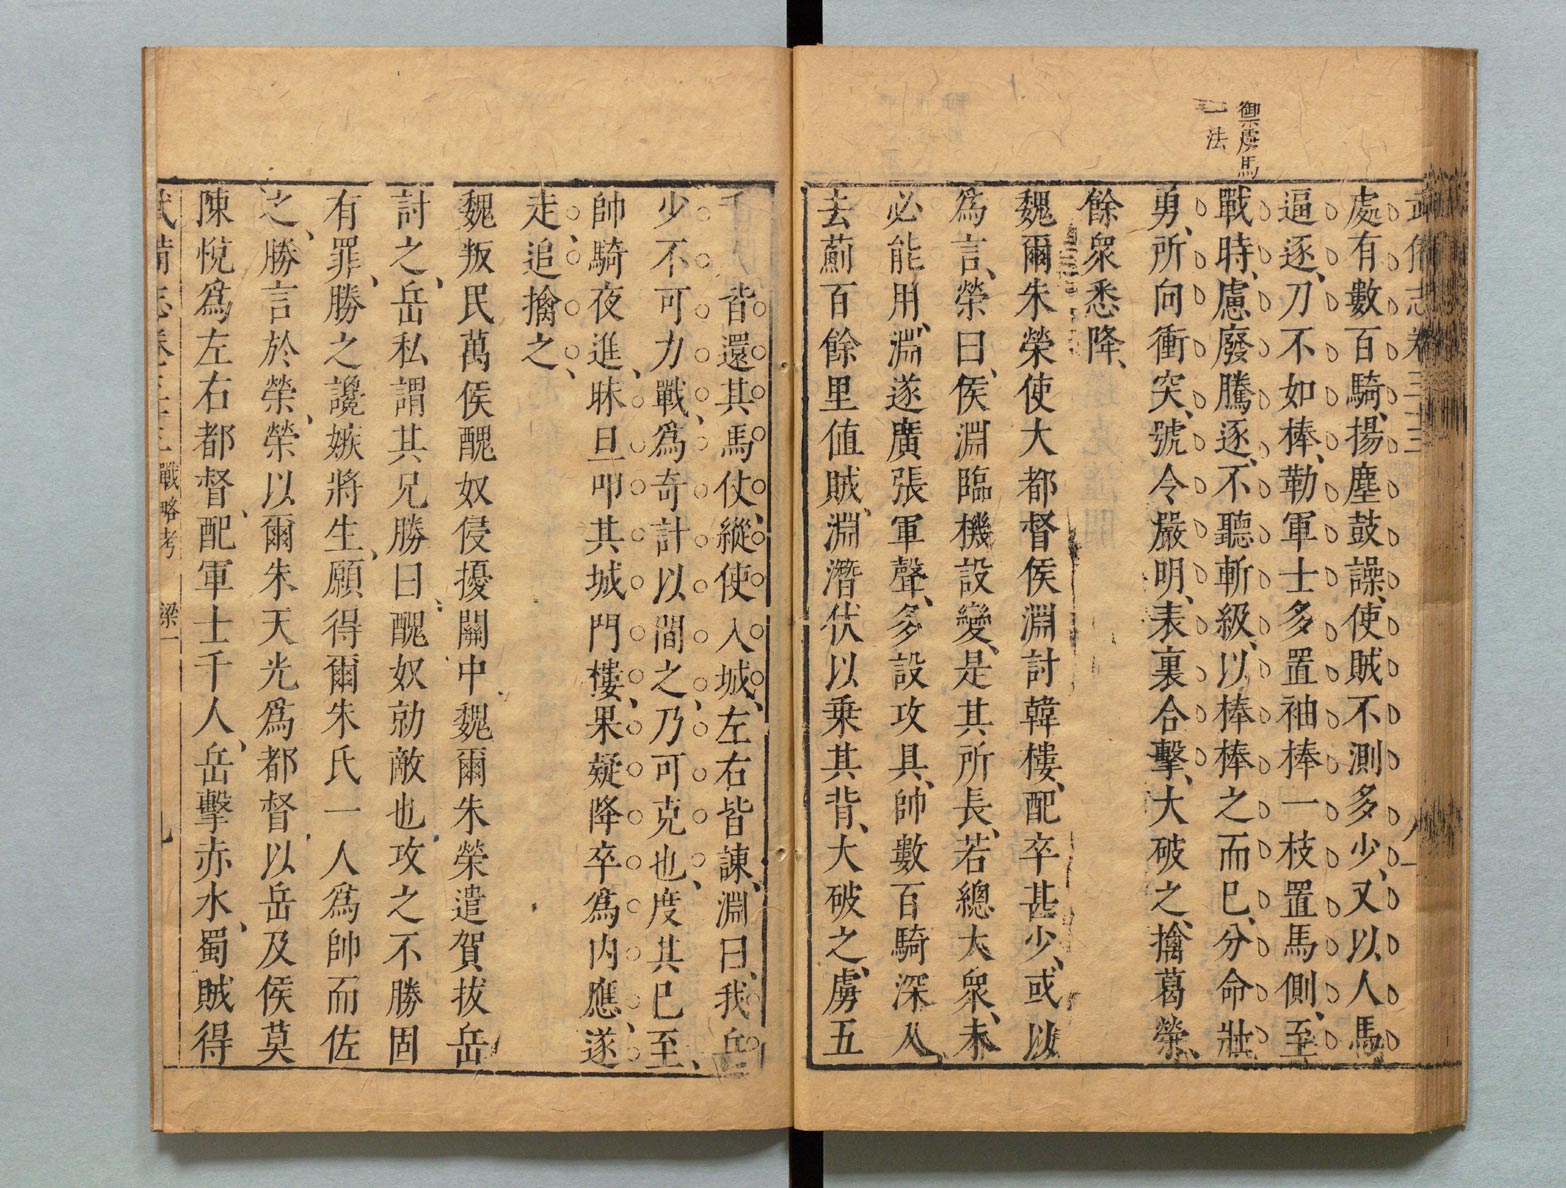 御虜馬
一法
武備志卷三十三
處有數百騎、揚塵鼓譟、使賊不測多少、又以人馬
逼逐、刀不如棒、勒軍士多置袖棒一枝置馬側、至
戰時、慮廢騰逐、不聽斬級、以棒棒之而已、分命壯
勇、所向衝突、號令嚴明、表裏合擊、大破之、擒葛榮、
餘衆悉降、
魏爾朱榮使大都督侯淵討韓樓、配卒甚少、或以
爲言、榮曰、侯淵臨機設變、是其所長、若總大衆、未
必能用、淵遂廣張軍聲、多設攻具、帥數百騎深入、
去薊百餘里值賊、淵潛伏以乗其背、大破之、虜五
千皆還其馬仗、縱使入城、左右皆諫、淵曰、我兵
少不可力戰、爲奇計以間之、乃可克也、度其已至、
帥騎夜進、昧旦叩其城門、樓果疑降卒爲内應、遂
走、追擒之、
魏叛民萬侯醜奴侵擾關中、魏爾朱榮遣賀拔岳
討之、岳私謂其兄勝曰、醜奴勍敵也、攻之不勝固
有罪、勝之讒嫉將生、願得爾朱氏一人爲帥而佐
之、勝言於榮、榮以爾朱天光爲都督、以岳及侯莫
陳悅爲左右都督、配軍士千人、岳擊赤水蜀賊得
武備志卷三十三 戰略考 梁一 九